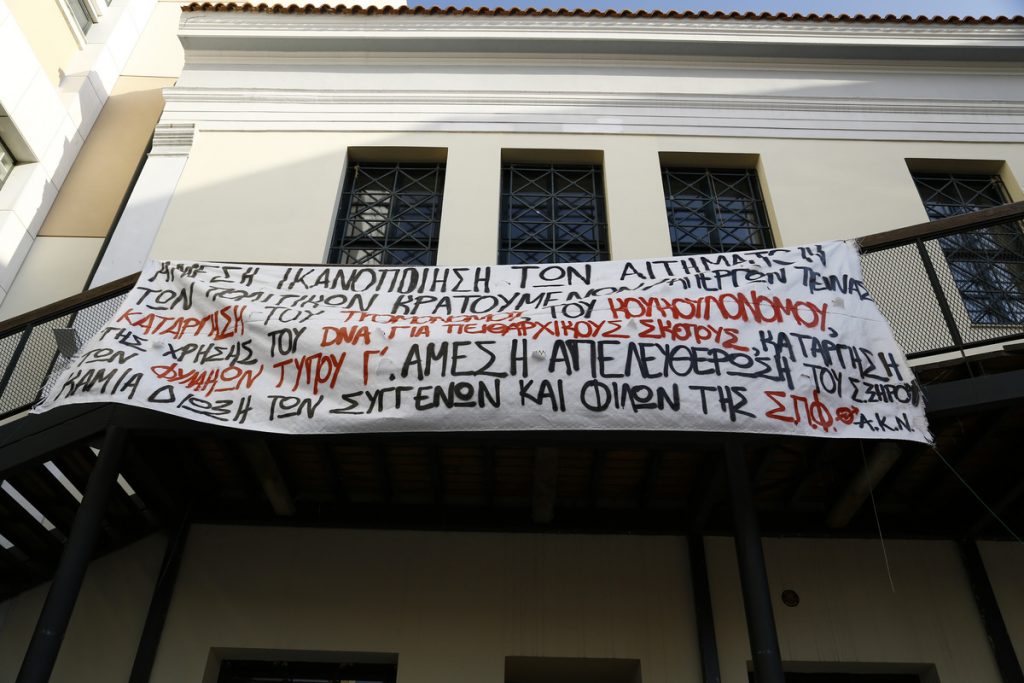 ΑΜΕΣΗ ΙΚΑΝΟΠΟΙΗΣΗ ΤΩΝ ΑΙΤΗΜΑΤΩΝ
ΤΩΝ ΠΟΛΙΤΙΚΩΝ ΚΡΑΤΟΥΜΕΝΩΝ ΑΠΕΡΓΩΝ ΠΕΙΝΑΣ
ΚΑΤΑΡΓΗΣΗ ΤΟΥ ΤΡΟΜΟΝΟΜΟΥ, ΤΟΥ ΚΟΥΚΟΥΛΟΝΟΜΟΥ,
ΤΗΣ ΧΡΗΣΗΣ ΤΟΥ DNA ΓΙΑ ΠΕΙΘΑΡΧΙΚΟΥΣ ΣΚΟΠΟΥΣ, ΚΑΤΑΡΓΗΣΗ
ΤΩΝ ΦΥΛΑΚΩΝ ΤΥΠΟΥ Γ΄. ΑΜΕΣΗ ΑΠΕΛΕΥΘΕΡΩΣΗ ΤΟΥ Σ.ΞΗΡΟΥ
ΚΑΜΙΑ ΔΙΩΞΗ ΤΩΝ ΣΥΓΓΕΝΩΝ ΚΑΙ ΦΙΛΩΝ ΤΗΣ Σ.Π.Φ. Α.Κ.Ν.